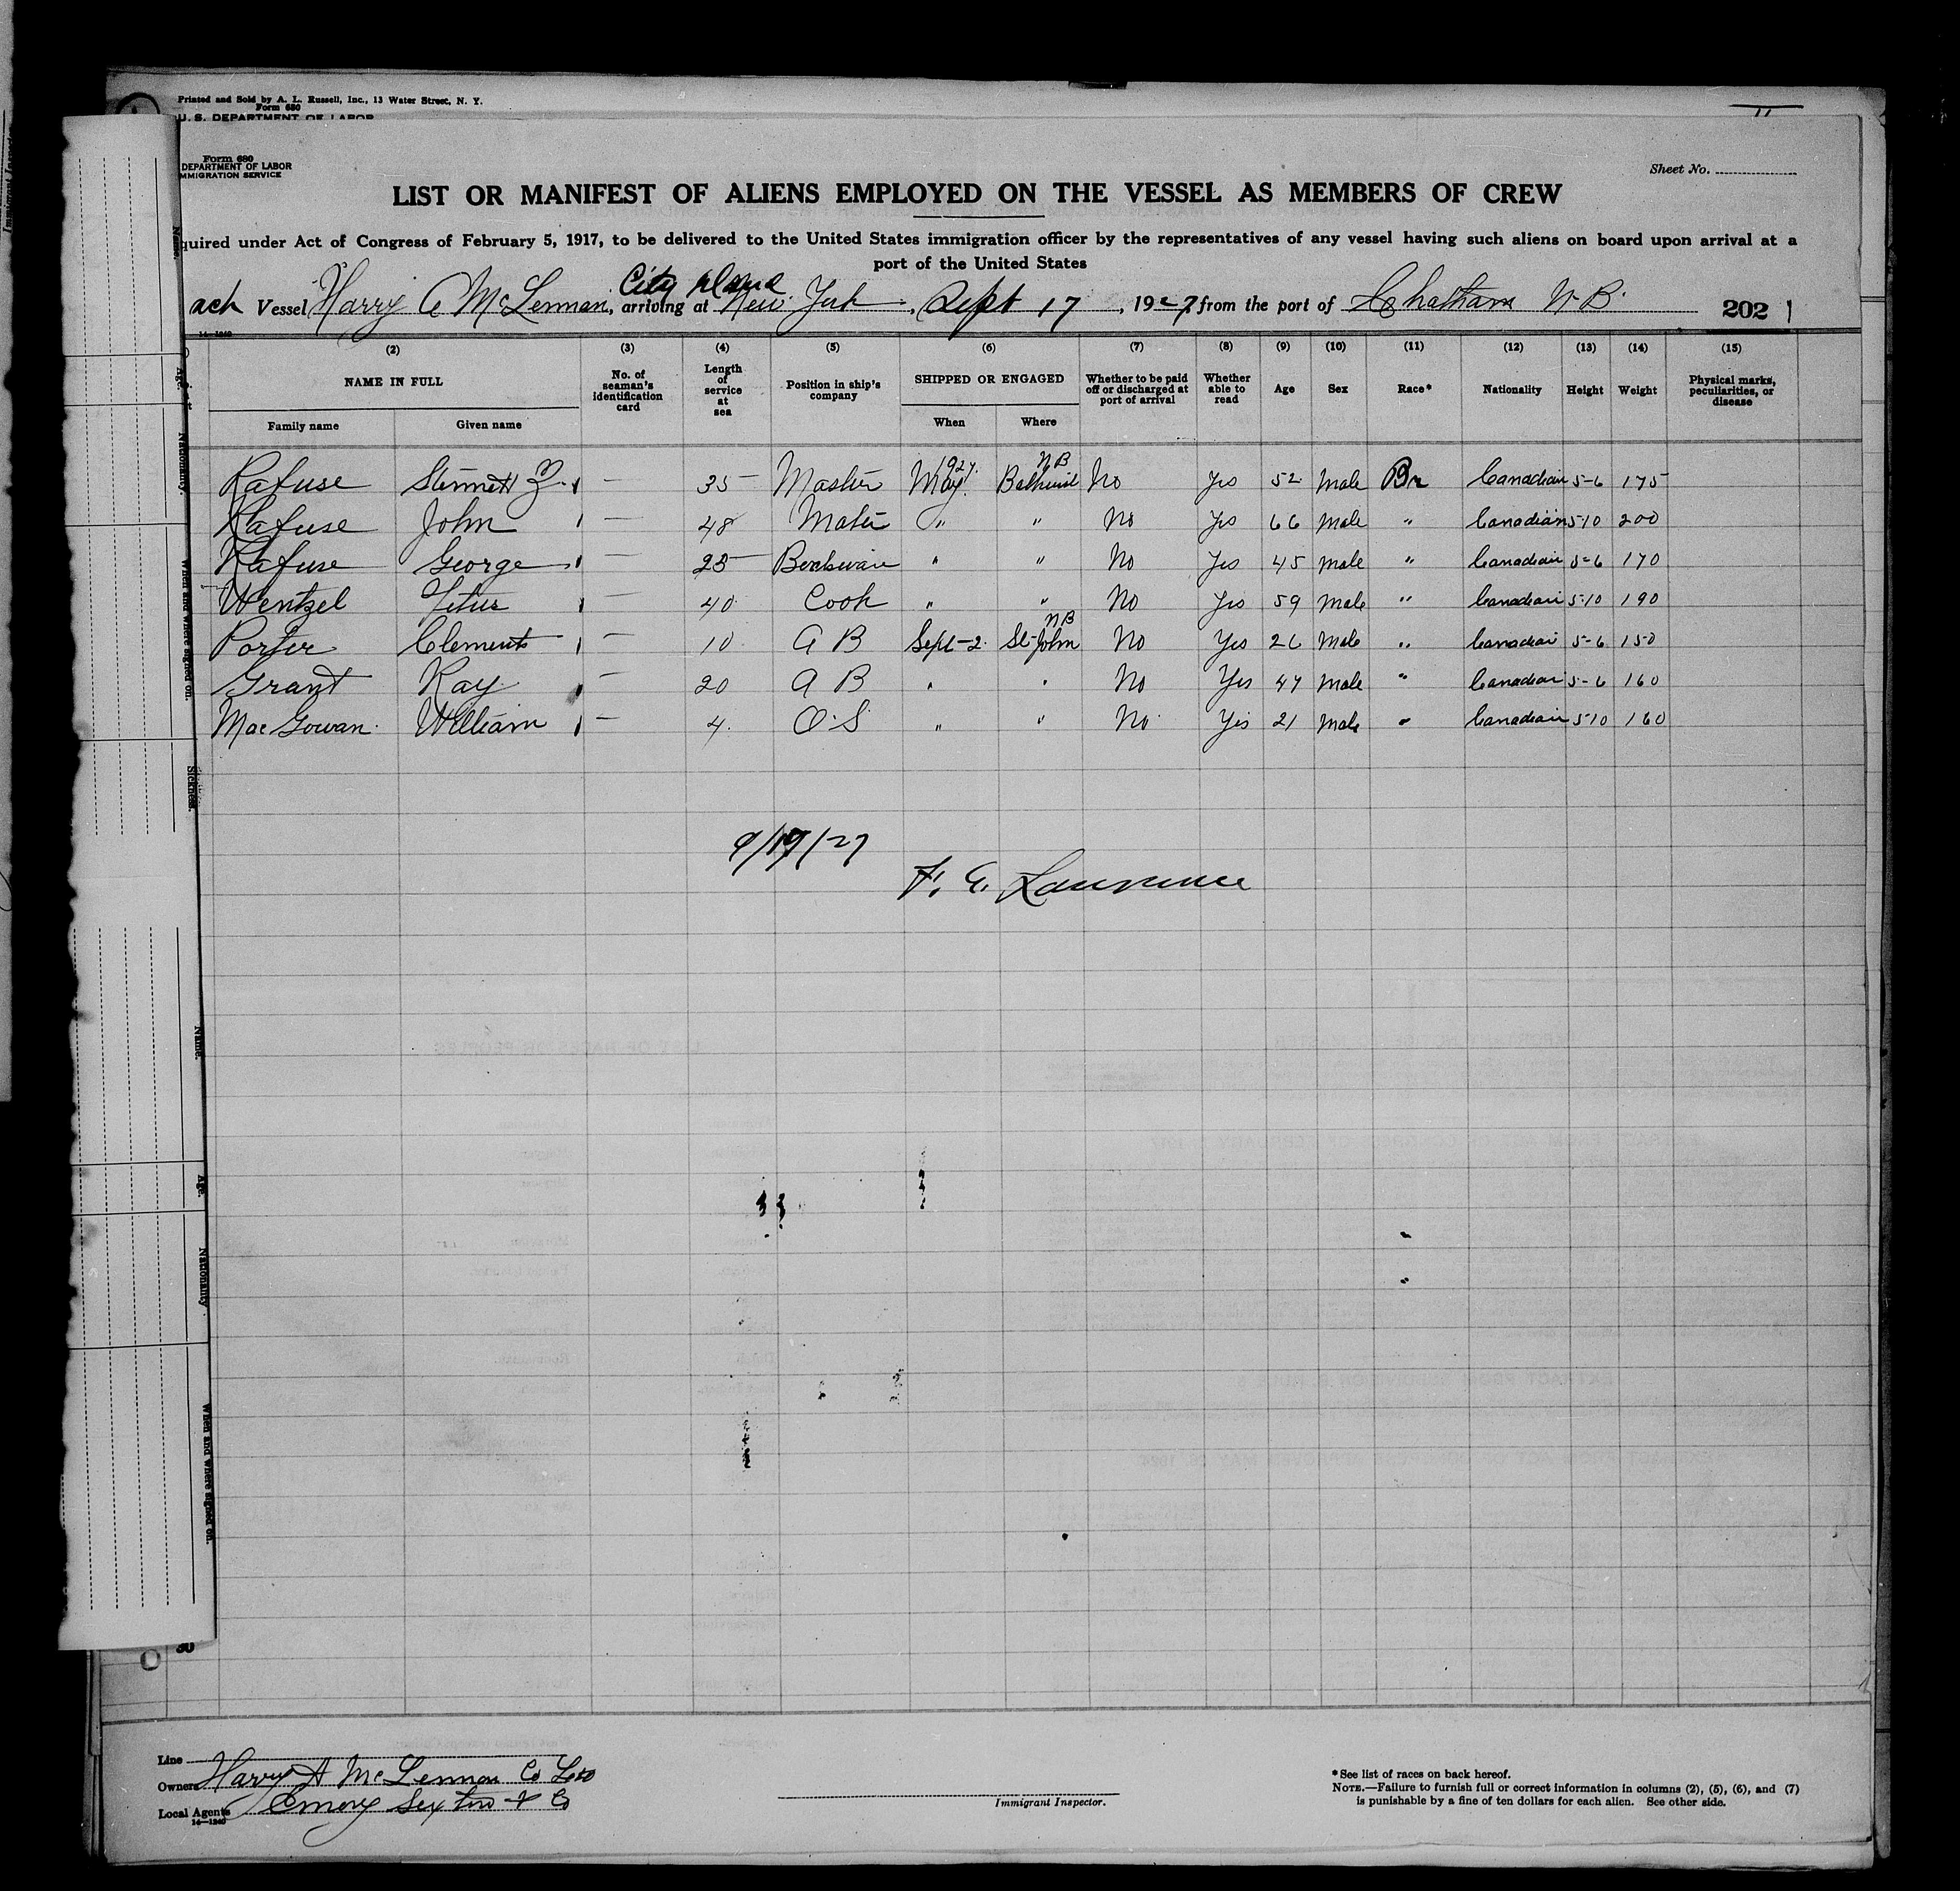 Printed and Sold by A. L. Russell, Inc., 13 Water Street, N. Y.
Form 680
U. S. DEPARTMENT OF LABOR
Form 680
DEPARTMENT OF LABOR
MMIGRATION SERVICE
Sheet No.
LIST OR MANIFEST OF ALIENS EMPLOYED ON THE VESSEL AS MEMBERS OF CREW
quired under Act of Congress of February 5, 1917, to be delivered to the United States immigration officer by the representatives of any vessel having such aliens on board upon arrival at a
port of the United States
City Island
Vessel Harry A McLennan, arriving at New York, Sept 17, 1927, from the port of Chatham N.B. 202
(2) (3) (4) (5) (6) (7) (8) (9) (10) (11) (12) (13) (14) (15)
NAME IN FULL No. of seaman's identification card Length of service at sea Position in ship's company SHIPPED OR ENGAGED Whether to be paid off or discharged at port of arrival Whether able to read Age Sex Race* Nationality Height Weight Physical marks, peculiarities, or disease
Family name Given name When Where
1927. NB
Rafuse Stennett Z. — 35 Master May Bathurst No Yes 52 Male Br Canadian 5-6 175
Rafuse John — 48 Mate " " No Yes 66 Male " Canadian 5-10 200
Rafuse George — 25 Boatswain " " No Yes 45 Male " Canadian 5-6 170
Wentzel Titus — 40 Cook " " No Yes 59 Male " Canadian 5-10 190
NB
Porter Clements — 10 A B Sept-2 St-John No Yes 26 Male " Canadian 5-6 150
Grant Ray — 20 A B " " No Yes 47 Male " Canadian 5-6 160
MacGowan William — 4 O.S " " No Yes 21 Male " Canadian 5-10 160
9/19/27
F. E. Lawrence
Name.
Age.
Nationality.
When and where signed on.
Sickness.
Name.
Age.
Nationality
When and where signed on.
30
Line
Owners Harry A McLennan Co Ltd
Local Agents Emory Sexton & Co
14—1240
Immigrant Inspector.
*See list of races on back hereof.
NOTE.—Failure to furnish full or correct information in columns (2), (5), (6), and (7)
is punishable by a fine of ten dollars for each alien. See other side.